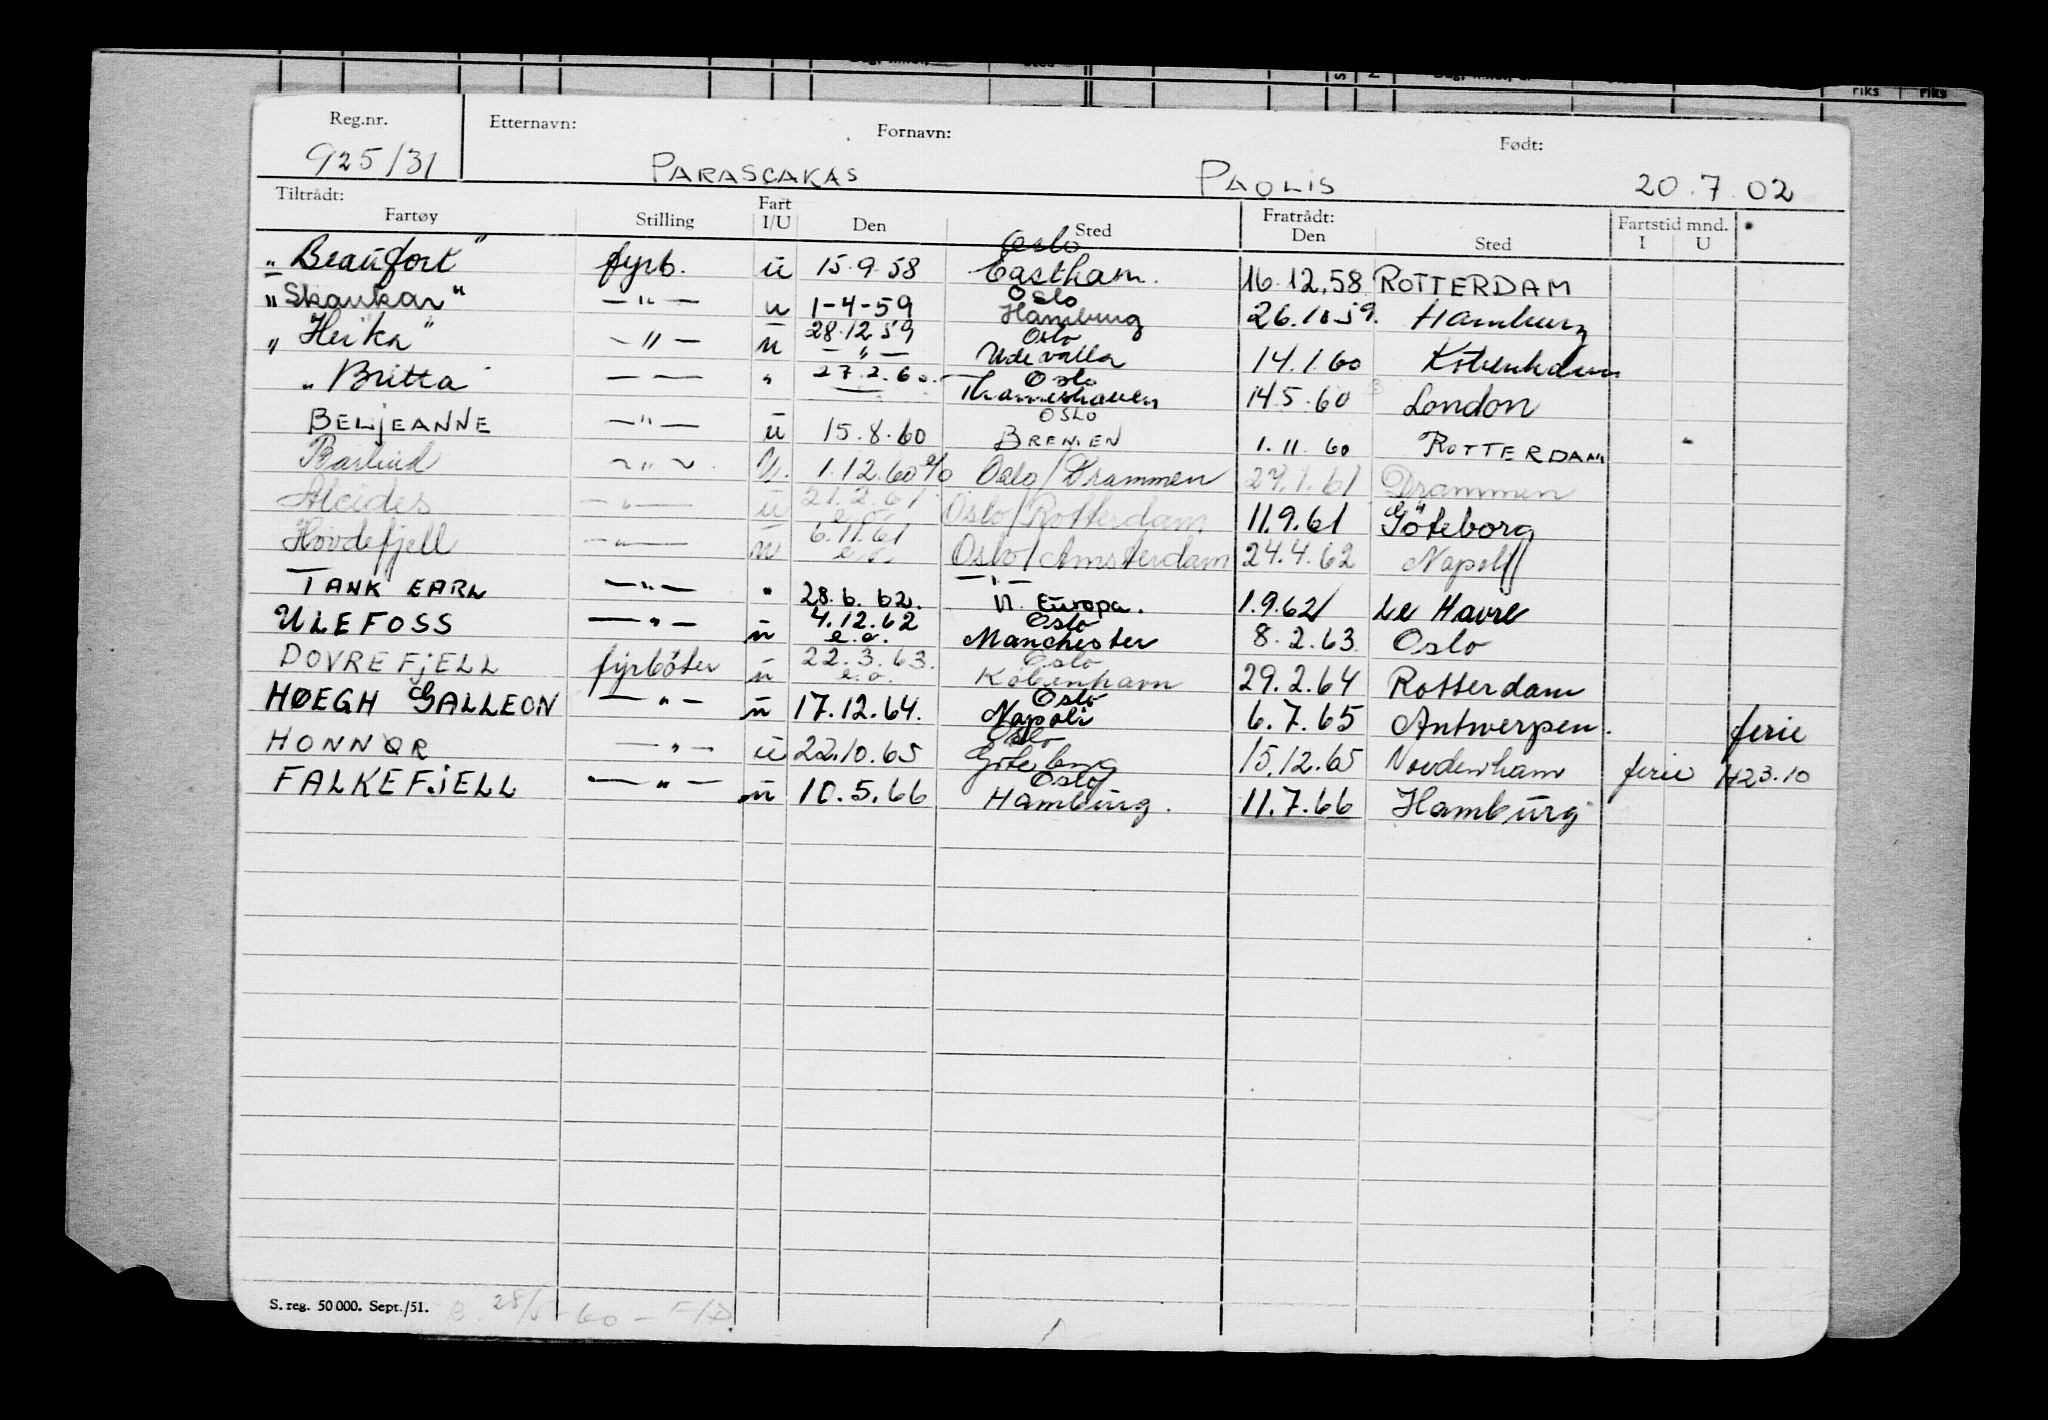 Reg.nr. Etternavn: Fornavn: Født:
925/31 PARASCAKAS PAOLIS 20.7.02
Tiltrådt: Fart Fratrådt: Fartstid mnd.
Fartøy Stilling I/U Den Sted Den Sted I U
Oslo
"Beaufort" fyrb. u 15.9.58 Eastham. 16.12.58 ROTTERDAM
Oslo
"Skaukar" —"— u 1-4-59 Hamburg 26.10.59. Hamburg
28.12.59 Oslo
"Heika" —"— u —"— Udevalla 14.1.60 København
27.2.60. Oslo
"Britta" —— " —— Thameshaven 14.5.60 London
OSLO
BELJEANNE —"— u 15.8.60 BREMEN 1.11.60 ROTTERDAM
Barlind —"— u. 1.12.60 e/o Oslo/Drammen 27.1.61 Drammen
21.2.61
Alcides —"— u e.o. Oslo/Rotterdam 11.9.61 Göteborg
6.11.61
Hovdefjell —"— u e.o. Oslo/Amsterdam 24.4.62 Napoli
—"—
TANK EARL —"— " 28.6.62. N. Europa. 1.9.62 Le Havre
4.12.62 Oslo
ULEFOSS —"— u e.o. Manchester 8.2.63 Oslo
22.3.63. Oslo
DOVREFJELL fyrbøter u e.o. København 29.2.64 Rotterdam
Oslo
HØEGH GALLEON —"— u 17.12.64. Napoli 6.7.65 Antwerpen. ferie
Oslo
HONNØR —"— u 22.10.65 Göteborg 15.12.65 Nordenham ferie 23.10
Oslo
FALKEFJELL —"— u 10.5.66 Hamburg. 11.7.66 Hamburg
S. reg. 50 000. Sept./51.